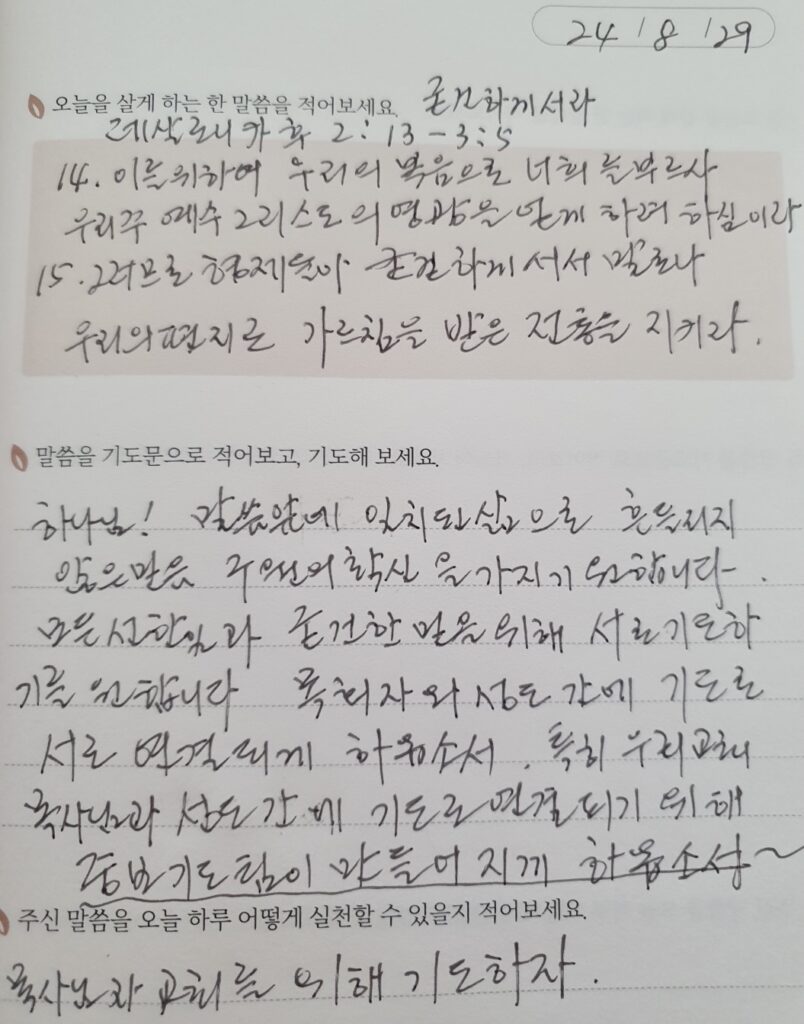 24 / 8 / 29
오늘을 살게 하는 한 말씀을 적어보세요. 굳건하게서라
데살로니가 후 2:13-3:5
14. 이를위하여 우리의 복음으로 너희를부르사
우리주 예수 그리스도의 영광을 얻게 하려 하심이라
15. 그러므로 형제들아 굳건하게 서서 말로나
우리의편지로 가르침을 받은 전통을 지키라.
말씀을 기도문으로 적어보고, 기도해 보세요.
하나님! 말씀앞에 일치된삶으로 흔들리지
않은믿음 구원의확신을가지기 원합니다.
모든선한일과 굳건한 믿음을위해 서로기도하
기를 원합니다 목회자와 성도 간에 기도로
서로 연결되게 하옵소서. 특히 우리교회
목사님과 성도간에 기도로연결되기 위해
중보기도팀이 만들어 지게 하옵소서~
주신 말씀을 오늘 하루 어떻게 실천할 수 있을지 적어보세요.
목사님과 교회를 위해 기도하자.